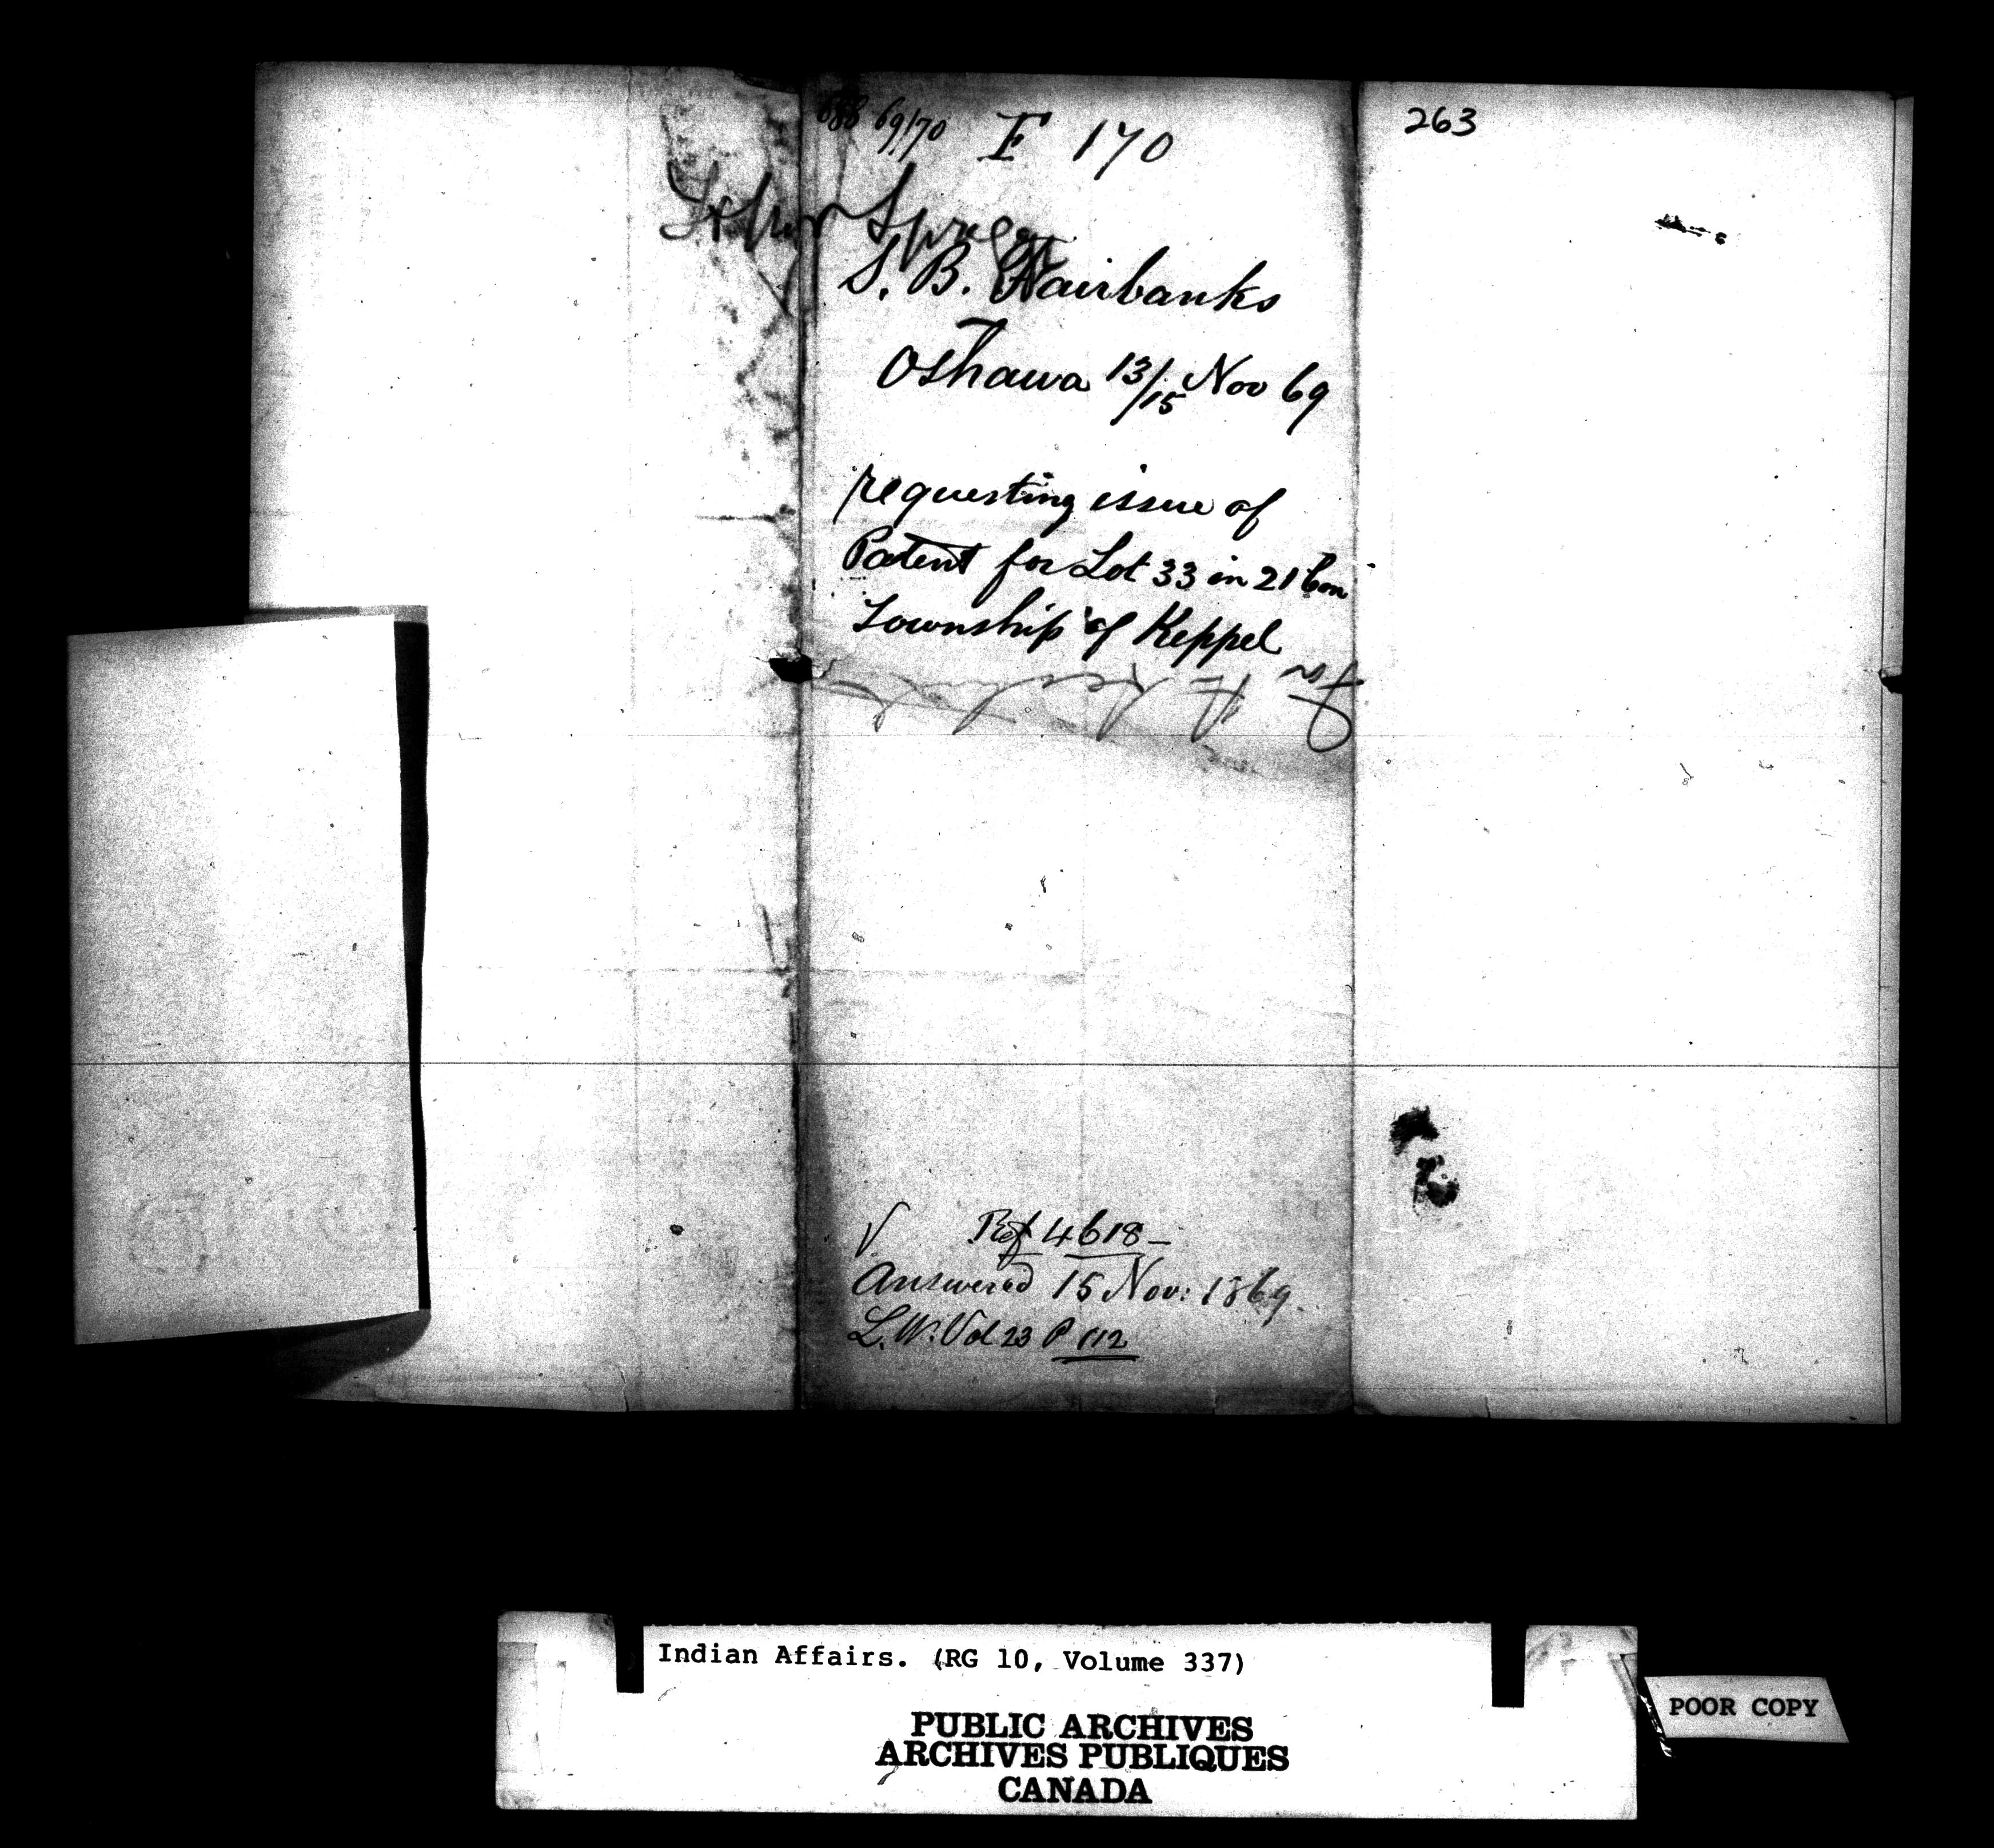 688 69/70 F 170
263
S. B. Fairbanks
Oshawa 13/15 Nov 69
requesting issue of
Patent for Lot 33 in 21 Con
Township of Keppel
For
Ref 4618-
Answered 15 Nov: 1869.
L.W. Vol 23 P 112
Indian Affairs. (RG 10, Volume 337)
PUBLIC ARCHIVES
ARCHIVES PUBLIQUES
CANADA
POOR COPY